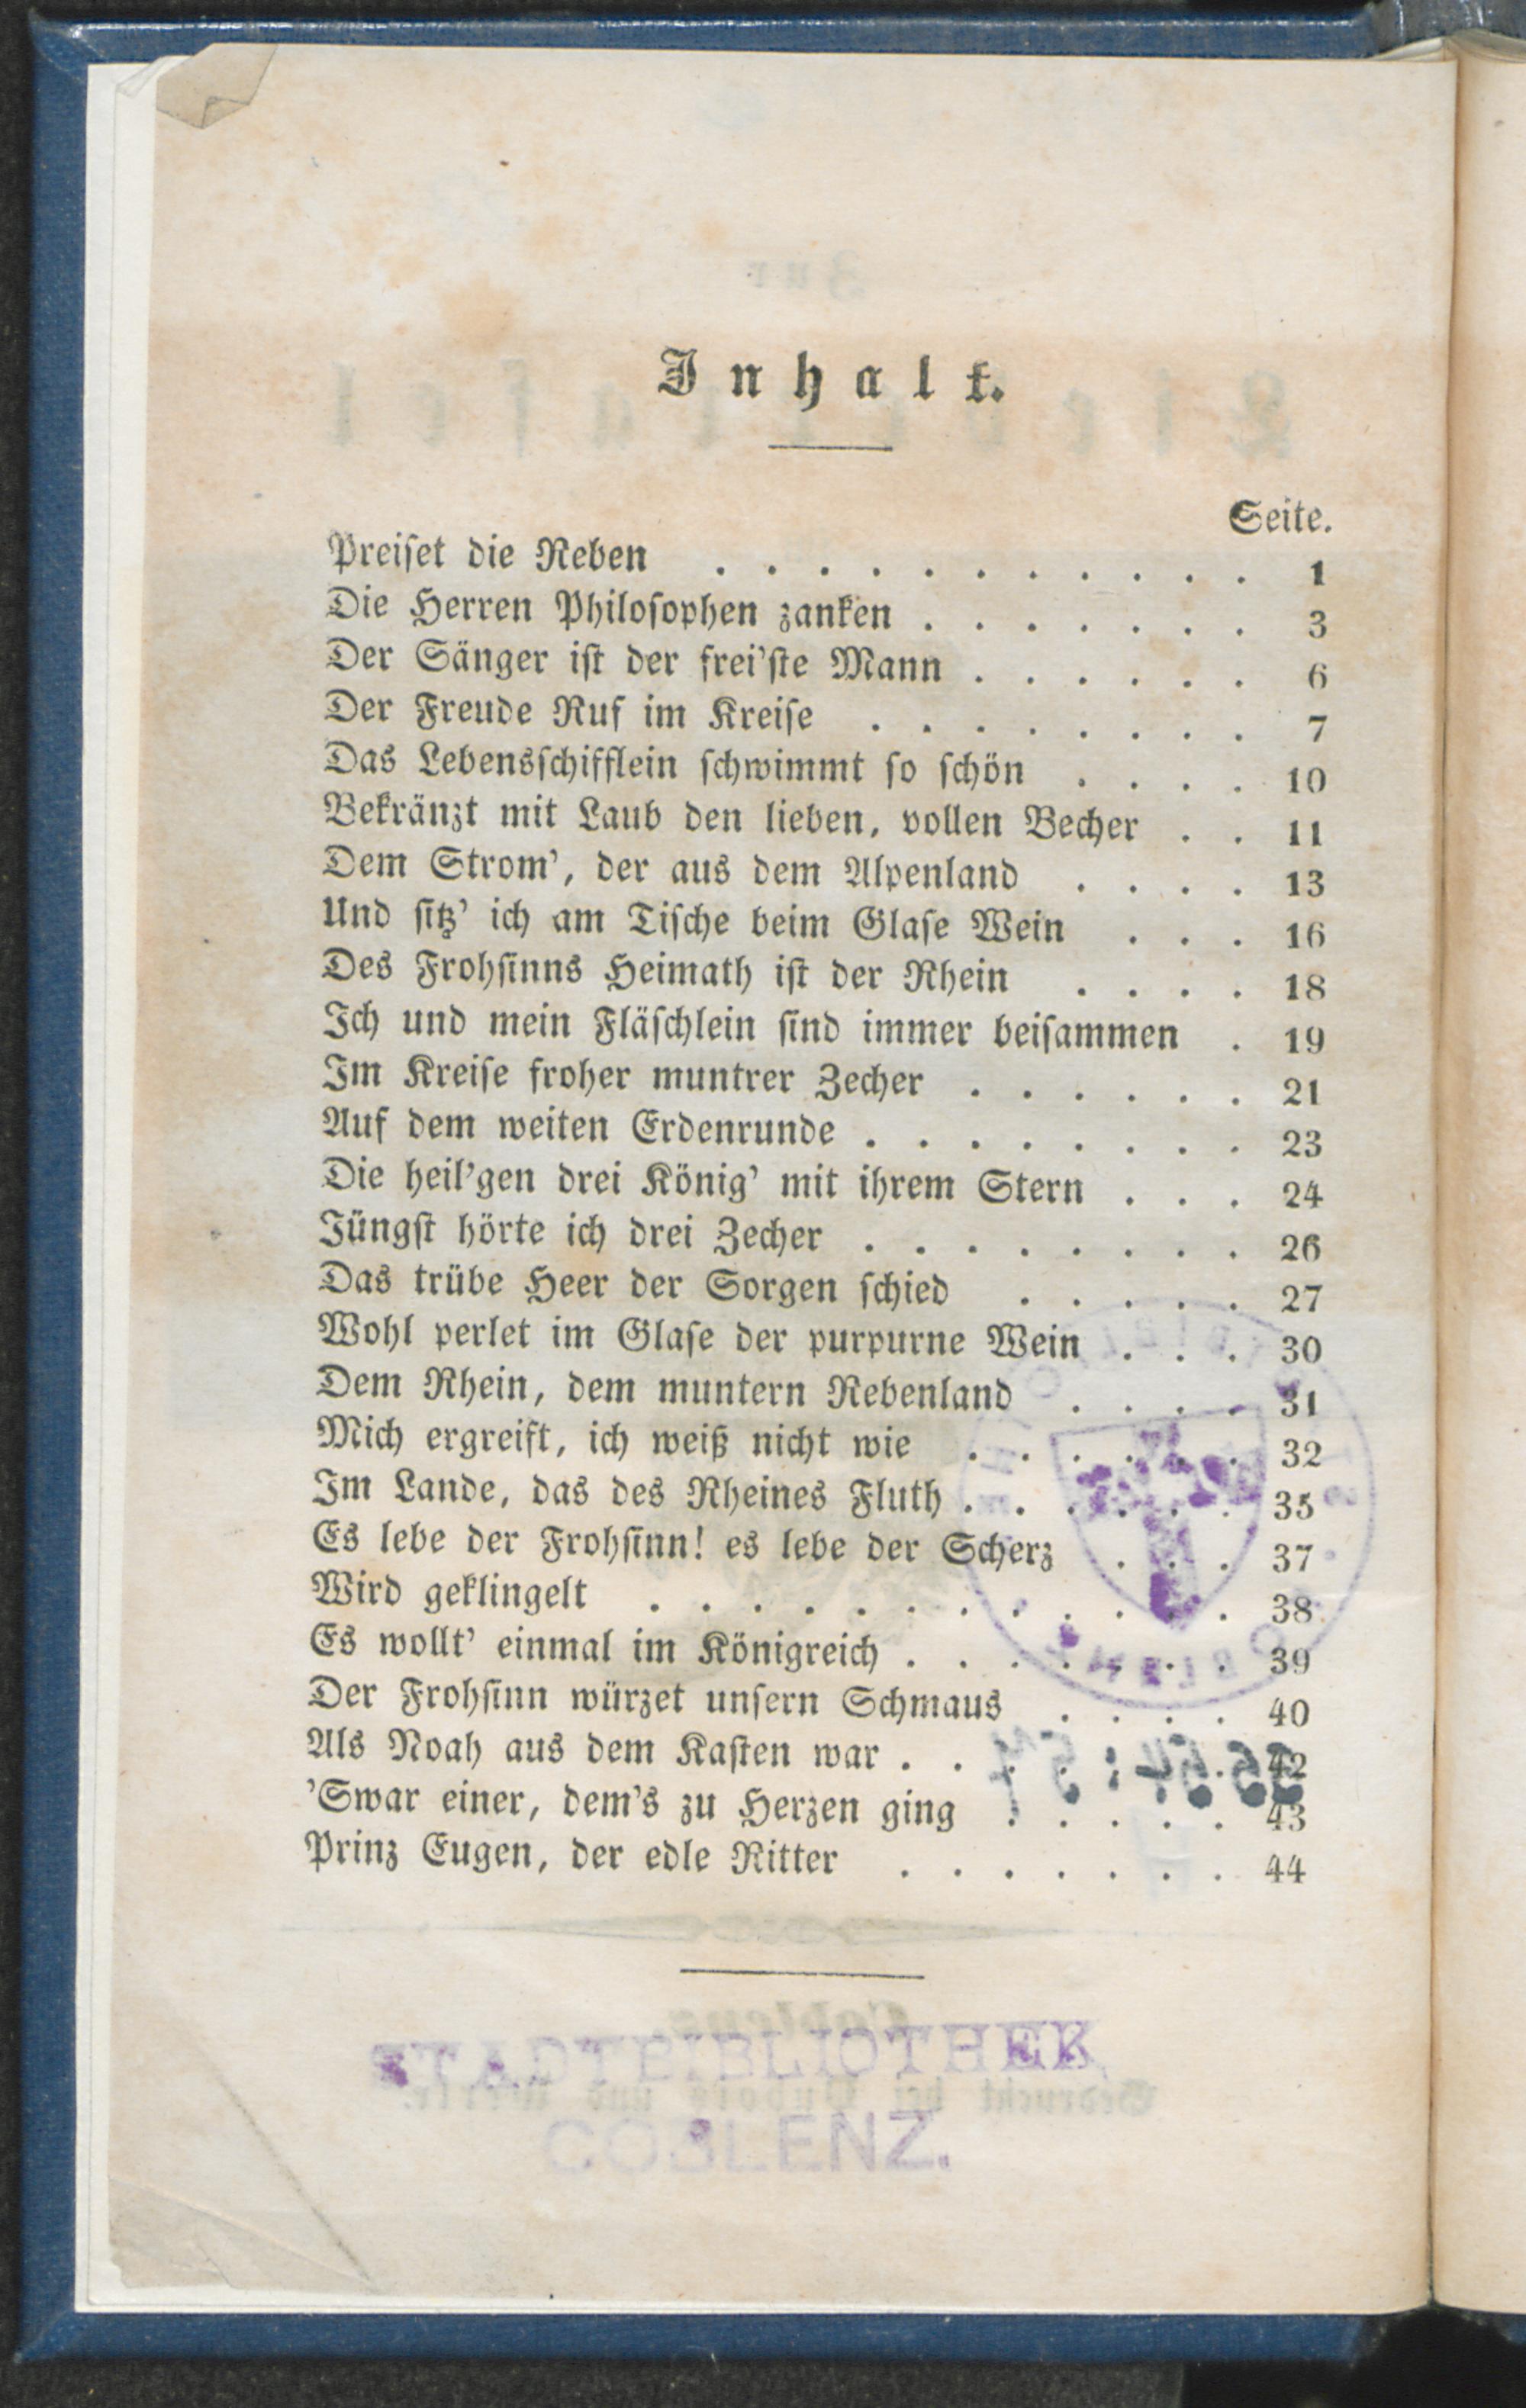 Inhalt.
Seite.
Preiſet die Reben . . . . . . . . . . . 1
Die Herren Philoſophen zanken . . . . . . . 3
Der Sänger iſt der frei'ſte Mann . . . . . . 6
Der Freude Ruf im Kreiſe . . . . . . . . 7
Das Lebensſchifflein ſchwimmt ſo ſchön . . . . 10
Bekränzt mit Laub den lieben, vollen Becher . . 11
Dem Strom', der aus dem Alpenland . . . . 13
Und ſitz' ich am Tiſche beim Glaſe Wein . . . 16
Des Frohſinns Heimath iſt der Rhein . . . . 18
Ich und mein Fläſchlein ſind immer beiſammen . 19
Im Kreiſe froher muntrer Zecher . . . . . . 21
Auf dem weiten Erdenrunde . . . . . . . . 23
Die heil'gen drei König' mit ihrem Stern . . . 24
Jüngſt hörte ich drei Zecher . . . . . . . . 26
Das trübe Heer der Sorgen ſchied . . . . . 27
Wohl perlet im Glaſe der purpurne Wein . . . 30
Dem Rhein, dem muntern Rebenland . . . . 31
Mich ergreift, ich weiß nicht wie . . . . . . 32
Im Lande, das des Rheines Fluth . . . . . . 35
Es lebe der Frohſinn! es lebe der Scherz . . . 37
Wird geklingelt . . . . . . . . . . . . 38
Es wollt' einmal im Königreich . . . . . . . 39
Der Frohſinn würzet unſern Schmaus . . . . 40
Als Noah aus dem Kaſten war . . . . . . . 42
'Swar einer, dem's zu Herzen ging . . . . . 43
Prinz Eugen, der edle Ritter . . . . . . . 44
STADTBIBLIOTHEK
COBLENZ.